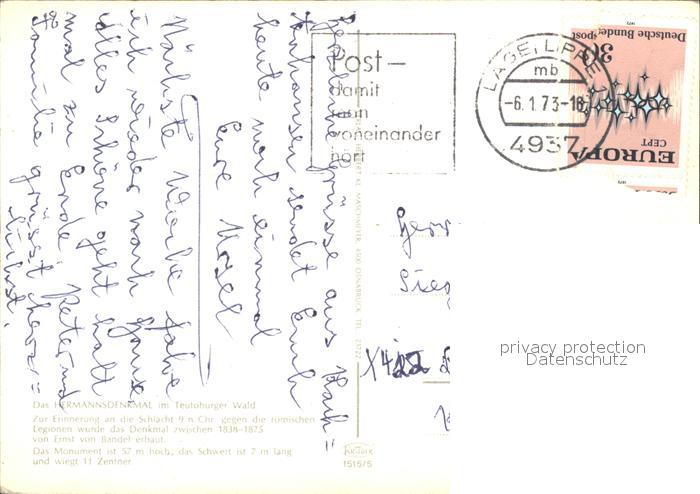 Herzliche Grüsse aus Kach=
tenhausen sendet Euch
heute noch einmal
Eure Mosel
Nächste Woche fahre
ich wieder nach Hause
alles Schöne geht halt
mal zu Ende. Peter und
Familie grüsst herz=
lichst.
Post—
damit
man
voneinander
hört
LAGE, LIPPE
mb
-6.1.73-18
4937
Deutsche Bundespost
30
CEPT
EUROPA
privacy protection
Datenschutz
Das HERMANNSDENKMAL im Teutoburger Wald
Zur Erinnerung an die Schlacht 9 n. Chr. gegen die römischen
Legionen wurde das Denkmal zwischen 1838-1875
von Ernst von Bandel erbaut.
Das Monument ist 57 m hoch, das Schwert ist 7 m lang
und wiegt 11 Zentner
1515/5